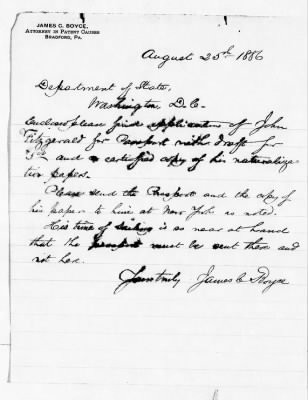 JAMES C. BOYCE,
ATTORNEY IN PATENT CAUSES
BRADFORD, PA.
August 25th 1886
Department of State,
Washington, D.C.
Enclosed please find application of John
Fitzgerald for Passport with draft for
and a certified copy of his naturaliza
tion papers.
Please send the Passport and the copy of
his paper to him at New York as noted.
His time of sailing is so near at hand
that the passport must be sent there and
not here.
Yours truly James C Boyce